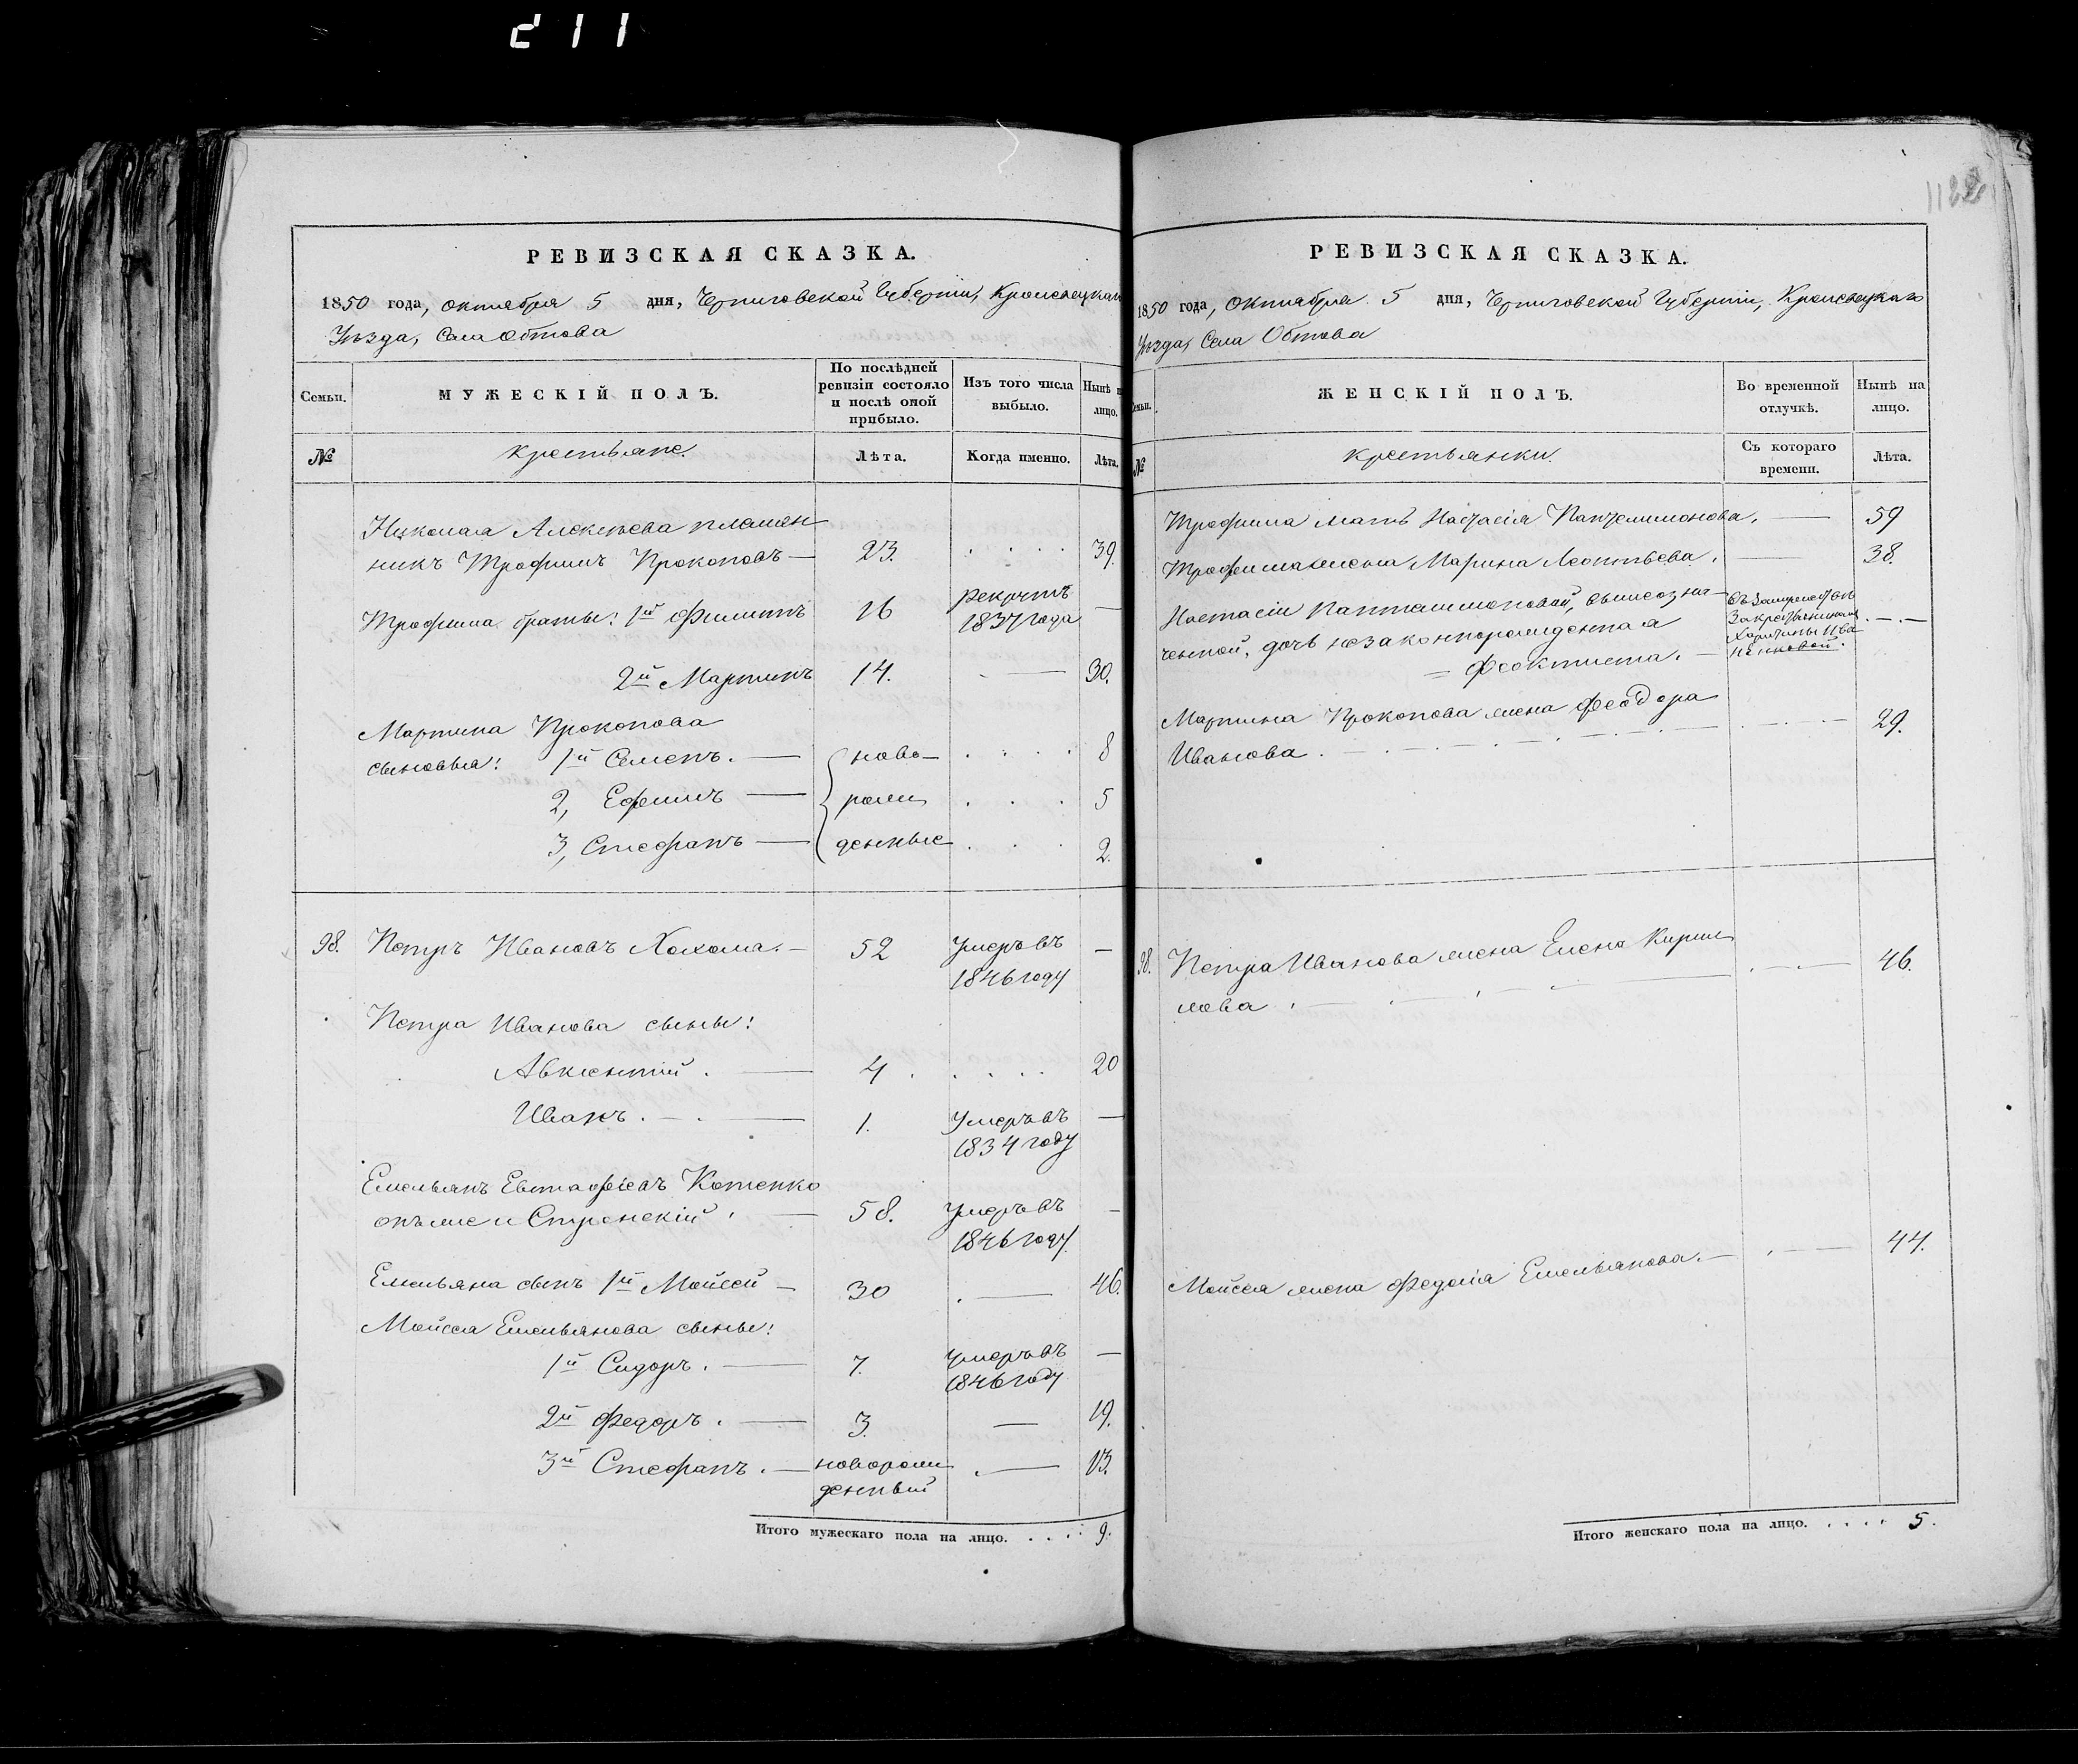 211
1122
РЕВИЗСКАЯ СКАЗКА.
1850 года, октября 5 дня, Черниговской Губерніи, Кролевецкаго
Уѣзда, Села Обтова
Семьи.
МУЖЕСКІЙ ПОЛЪ.
По послѣдней
ревизіи состояло
и послѣ оной
прибыло.
Изъ того числа
выбыло.
Нынѣ н
лицо.
№
крестьяне.
Лѣта.
Когда именно.
Лѣта.
Николая Алексѣева племен
никъ Трофимъ Прокоповъ — 23. 39.
Трофима братья: 1й Филипъ 16 рекрутъ —
1837 года
2й Мартинъ 14. — 30.
Мартина Прокопова
сыновья: 1й Семенъ. — ново- 8
2, Ефимъ — рож 5
3, Стефанъ — денные 2.
98. Петръ Ивановъ Холома. — 52 Умеръ въ —
1846 году
Петра Иванова сыны:
Авксентій. — 4. 20
Иванъ. — 1. Умеръ въ —
1834 году
Емельянъ Евстафіевъ Котенко
онъ же и Стренскій. — 58. Умеръ въ —
1846 году.
Емельяна сынъ 1й Мойсей — 30 — 46.
Мойсея Емельянова сыны:
1й Сидоръ. — 7. Умеръ въ —
1846 году
2й Федоръ. — 3. — 19.
3й Стефанъ. — новорож — 13.
денный
Итого мужескаго пола на лицо. . . . . 9.
РЕВИЗСКАЯ СКАЗКА.
1850 года, октября 5 дня, Черниговской Губерніи, Кролевецкаго
Уѣзда, Села Обтова
Семьи.
ЖЕНСКІЙ ПОЛЪ.
Во временной
отлучкѣ.
Нынѣ на
лицо.
№
крестьянки.
Съ котораго
времени.
Лѣта.
Трофима мать Настасія Пантелимонова. — 59
Трофима жена Марина Леонтьева. — 38.
Настасіи Пантелимоновой, вышеозна-
ченной, дочь незаконнорожденная
= Феоктиста. —
Мартина Прокопова жена Феодора
Иванова. — 29.
98. Петра Иванова жена Елена Кирил
лова. — 46.
Мойсея жена Федосія Емельянова. — 44.
Итого женскаго пола на лицо. . . . . 5.